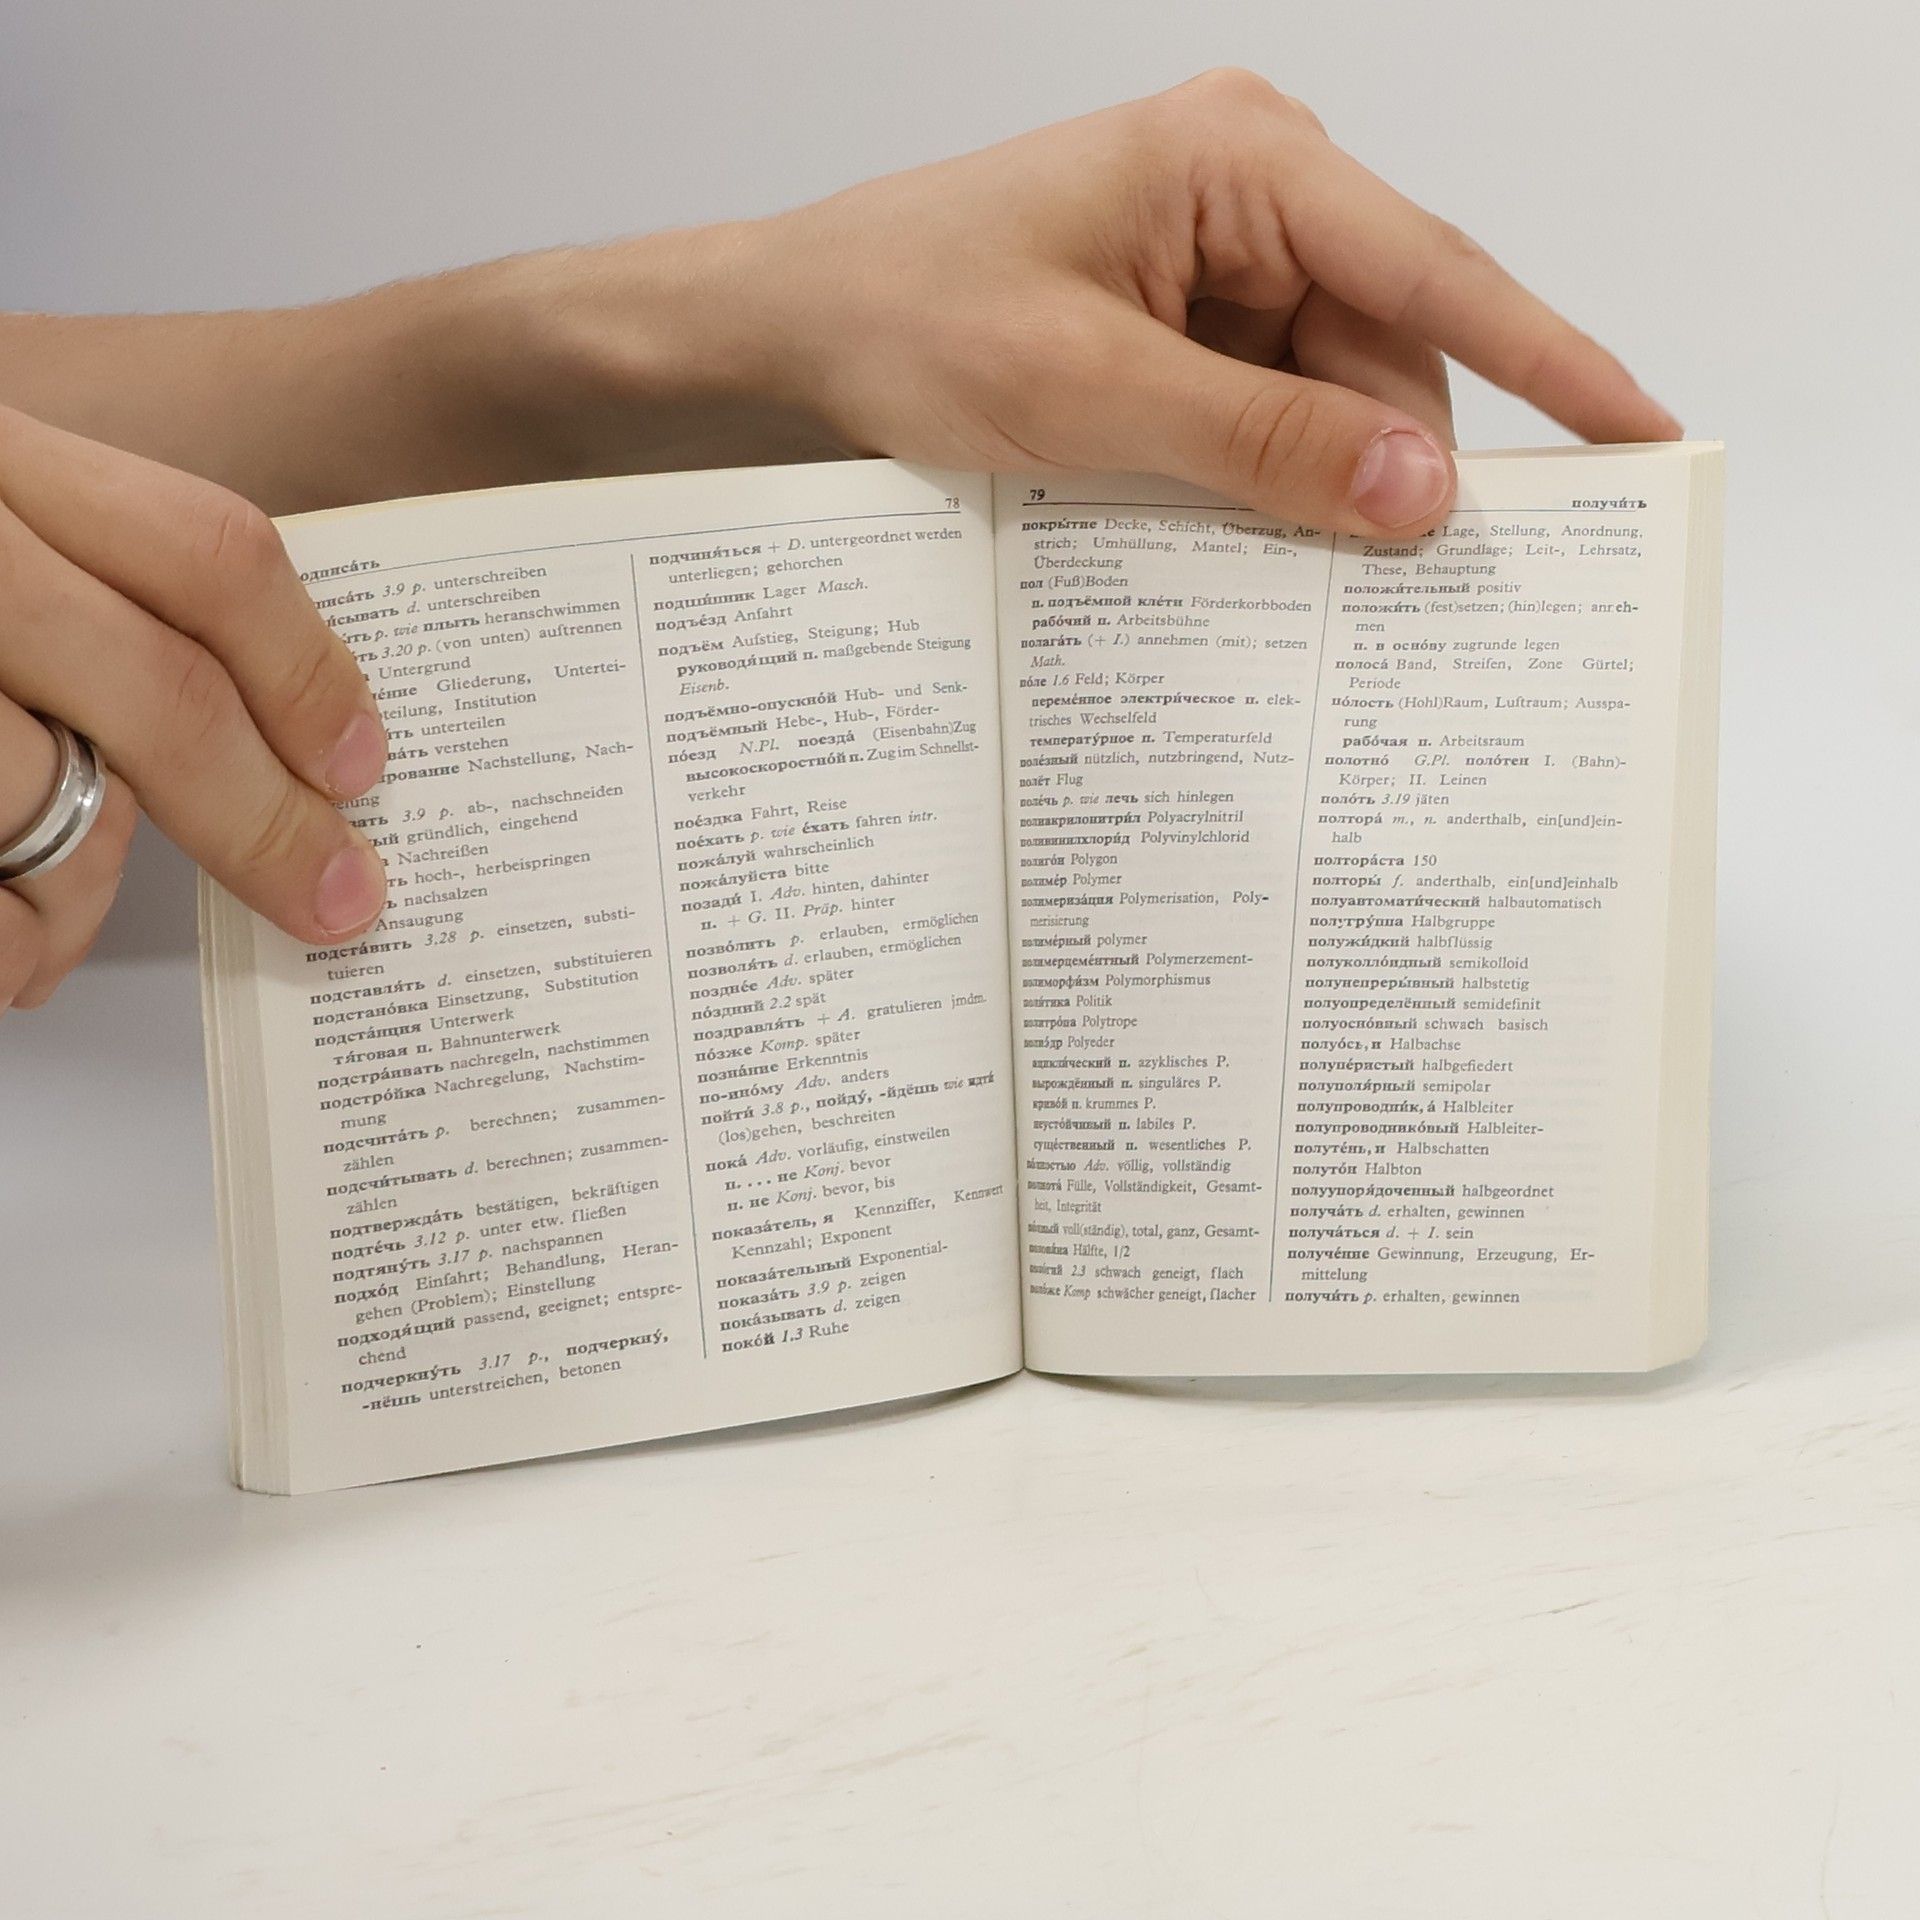 78
3.9 p. unterschreiben
d. unterschreiben
p. wie плыть heranschwimmen
3.20 p. (von unten) auftrennen
Untergrund
Gliederung, Untertei-
Institution
unterteilen
verstehen
Nachstellung, Nach-
3.9 p. ab-, nachschneiden
gründlich, eingehend
Nachreißen
hoch-, herbeispringen
nachsalzen
Ansaugung
подста́вить 3.28 p. einsetzen, substi-
tuieren
подставля́ть d. einsetzen, substituieren
подстано́вка Einsetzung, Substitution
подста́нция Unterwerk
тя́говая п. Bahnunterwerk
подстра́ивать nachregeln, nachstimmen
подстро́йка Nachregelung, Nachstim-
mung
подсчита́ть p. berechnen; zusammen-
zählen
подсчи́тывать d. berechnen; zusammen-
zählen
подтвержда́ть bestätigen, bekräftigen
подте́чь 3.12 p. unter etw. fließen
подтяну́ть 3.17 p. nachspannen
подхо́д Einfahrt; Behandlung, Heran-
gehen (Problem); Einstellung
подходя́щий passend, geeignet; entspre-
chend
подчеркну́ть 3.17 p., подчеркну́,
-нёшь unterstreichen, betonen
подчиня́ться + D. untergeordnet werden
unterliegen; gehorchen
подши́пник Lager Masch.
подъе́зд Anfahrt
подъём Aufstieg, Steigung; Hub
руководя́щий п. maßgebende Steigung
Eisenb.
подъёмно-опускно́й Hub- und Senk-
подъёмный Hebe-, Hub-, Förder-
по́езд N.Pl. поезда́ (Eisenbahn)Zug
высокоскоростно́й п. Zug im Schnellst-
verkehr
пое́здка Fahrt, Reise
пое́хать p. wie е́хать fahren intr.
пожа́луй wahrscheinlich
пожа́луйста bitte
позади́ I. Adv. hinten, dahinter
п. + G. II. Präp. hinter
позво́лить p. erlauben, ermöglichen
позволя́ть d. erlauben, ermöglichen
поздне́е Adv. später
по́здний 2.2 spät
поздравля́ть + A. gratulieren jmdm.
по́зже Komp. später
позна́ние Erkenntnis
по-ино́му Adv. anders
пойти́ 3.8 p., пойду́, -йдёшь wie идти́
(los)gehen, beschreiten
пока́ Adv. vorläufig, einstweilen
п. ... не Konj. bevor
п. не Konj. bevor, bis
показа́тель, я Kennziffer, Kennwert
Kennzahl; Exponent
показа́тельный Exponential-
показа́ть 3.9 p. zeigen
пока́зывать d. zeigen
поко́й 1.3 Ruhe
79 получи́ть
покры́тие Decke, Schicht, Überzug, An-
strich; Umhüllung, Mantel; Ein-,
Überdeckung
пол (Fuß)Boden
п. подъёмной кле́ти Förderkorbboden
рабо́чий п. Arbeitsbühne
полага́ть (+ I.) annehmen (mit); setzen
Math.
по́ле 1.6 Feld; Körper
переме́нное электри́ческое п. elek-
trisches Wechselfeld
температу́рное п. Temperaturfeld
поле́зный nützlich, nutzbringend, Nutz-
полёт Flug
поле́чь p. wie лечь sich hinlegen
полиакрилонитри́л Polyacrylnitril
поливинилхлори́д Polyvinylchlorid
полиго́н Polygon
полиме́р Polymer
полимериза́ция Polymerisation, Poly-
merisierung
полиме́рный polymer
полимерцеме́нтный Polymerzement-
полиморфи́зм Polymorphismus
поли́тика Politik
политро́па Polytrope
полиэ́др Polyeder
ацикли́ческий п. azyklisches P.
вырожде́нный п. singuläres P.
криво́й п. krummes P.
неусто́йчивый п. labiles P.
суще́ственный п. wesentliches P.
по́лностью Adv. völlig, vollständig
полнота́ Fülle, Vollständigkeit, Gesamt-
heit, Integrität
по́лный voll(ständig), total, ganz, Gesamt-
полови́на Hälfte, 1/2
поло́гий 2.3 schwach geneigt, flach
поло́же Komp schwächer geneigt, flacher
Lage, Stellung, Anordnung,
Zustand; Grundlage; Leit-, Lehrsatz,
These, Behauptung
положи́тельный positiv
положи́ть (fest)setzen; (hin)legen; anneh-
men
п. в осно́ву zugrunde legen
полоса́ Band, Streifen, Zone Gürtel;
Periode
по́лость (Hohl)Raum, Luftraum; Ausspa-
rung
рабо́чая п. Arbeitsraum
полотно́ G.Pl. поло́тен I. (Bahn)-
Körper; II. Leinen
поло́ть 3.19 jäten
полтора́ m., n. anderthalb, ein[und]ein-
halb
полтора́ста 150
полторы́ f. anderthalb, ein[und]einhalb
полуавтомати́ческий halbautomatisch
полугру́ппа Halbgruppe
полужи́дкий halbflüssig
полуколло́идный semikolloid
полунепреры́вный halbstetig
полуопределённый semidefinit
полуосно́вный schwach basisch
полуо́сь, и Halbachse
полупе́ристый halbgefiedert
полуполя́рный semipolar
полупроводни́к, а́ Halbleiter
полупроводнико́вый Halbleiter-
полуте́нь, и Halbschatten
полуто́н Halbton
полуупоря́доченный halbgeordnet
получа́ть d. erhalten, gewinnen
получа́ться d. + I. sein
получе́ние Gewinnung, Erzeugung, Er-
mittelung
получи́ть p. erhalten, gewinnen